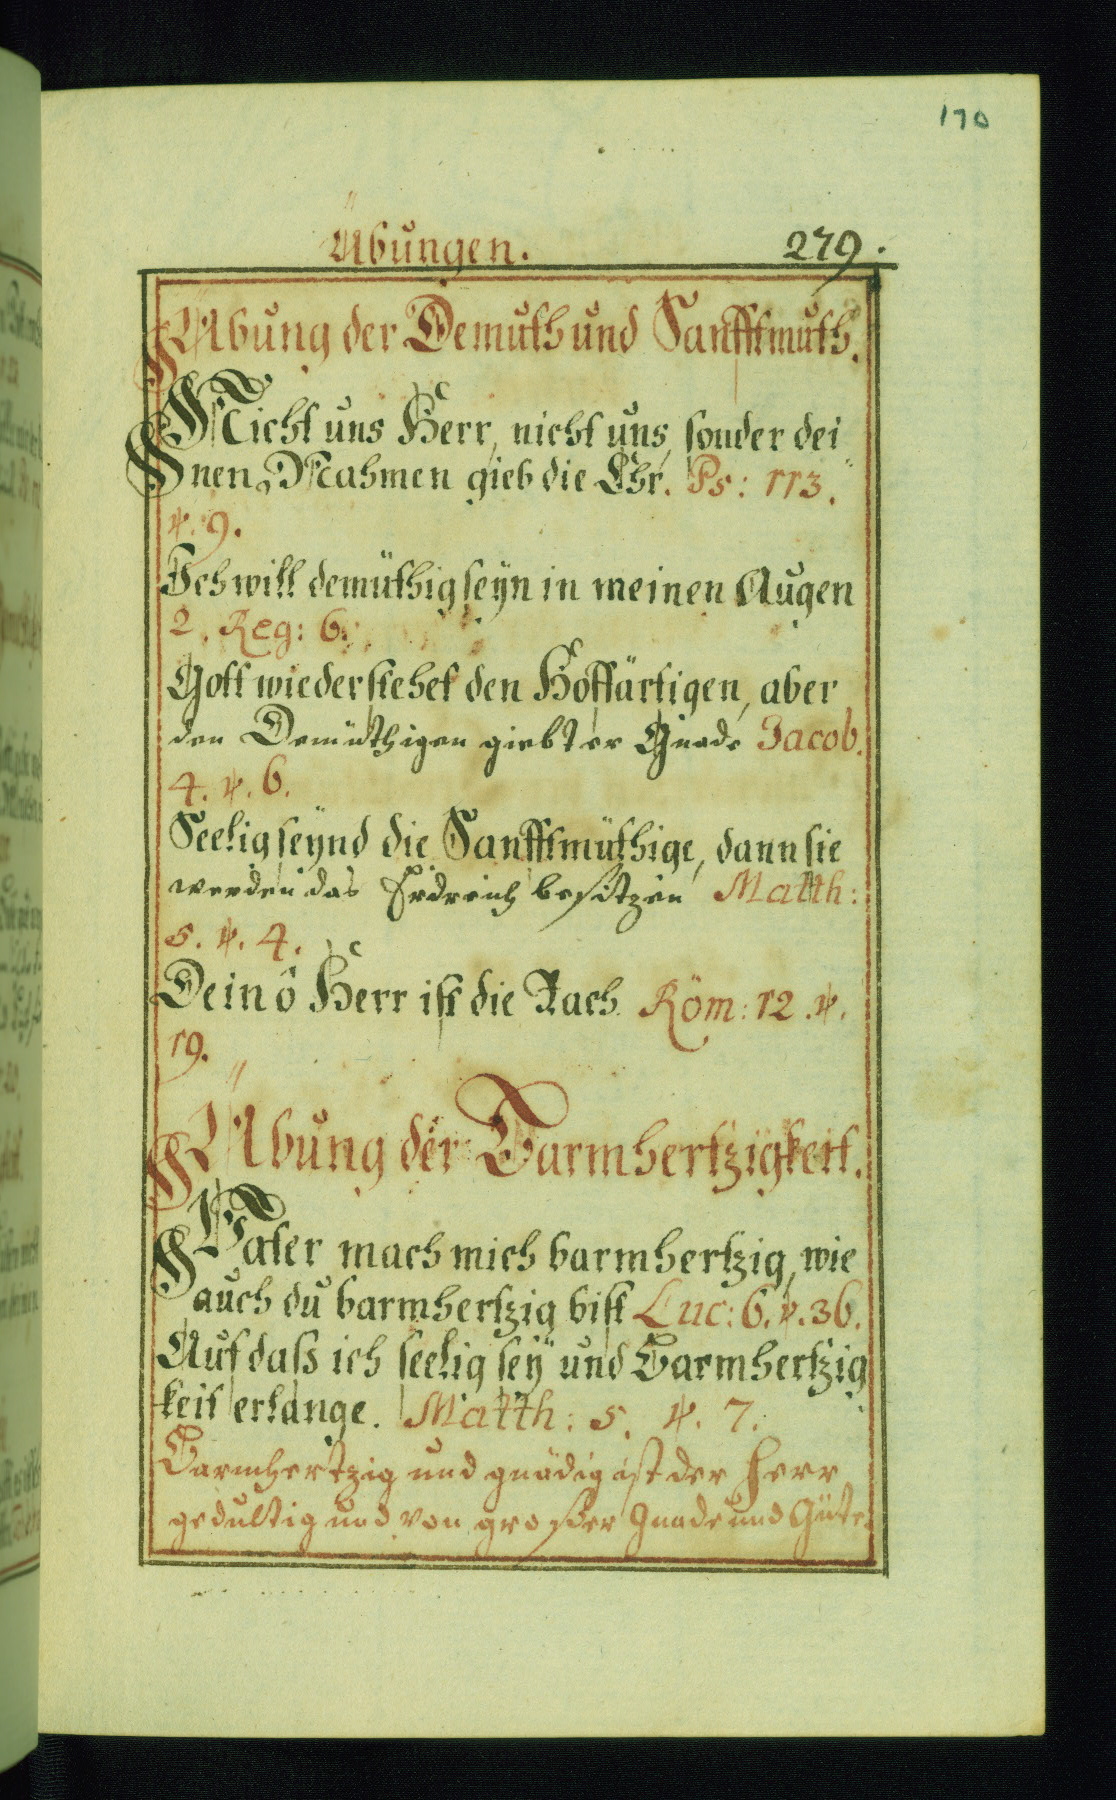 170
Übungen. 279.
Übung der Demuth und Sanfftmuth.
Nicht uns Herr, nicht uns, sonder dei
nen Nahmen gieb die Ehr. Ps: 113.
℣. 9.
Ich will demüthig seÿn in meinen Augen
2. Reg: 6.
Gott wiederstehet den Hoffärtigen, aber
den Demüthigen giebt er Gnade Jacob.
4. ℣. 6.
Seelig seÿnd die Sanfftmüthige, dann sie
werden das Erdreich besitzen Matth:
5. ℣. 4.
Dein ô Herr ist die Rach. Röm: 12. ℣.
19.
Übung der Barmhertzigkeit.
Vater mach mich barmhertzig, wie
auch du barmhertzig bist Luc: 6. ℣. 36.
Auf daß ich seelig seÿ und Barmhertzig
keit erlange. Matth: 5. ℣. 7.
Barmhertzig und gnädig ist der Herr
gedultig und von grosser Gnade und Güte.